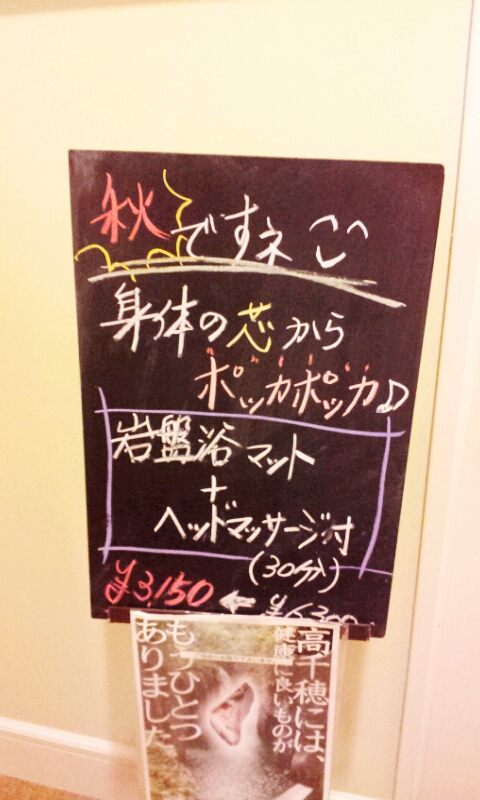 秋ですネ
身体の芯から
ポッカポッカ♪
岩盤浴マット
+
ヘッドマッサージ付
(30分)
¥3,150 ← ¥6,300
高千穂には、
健康に良いものが
もうひとつ
ありました。